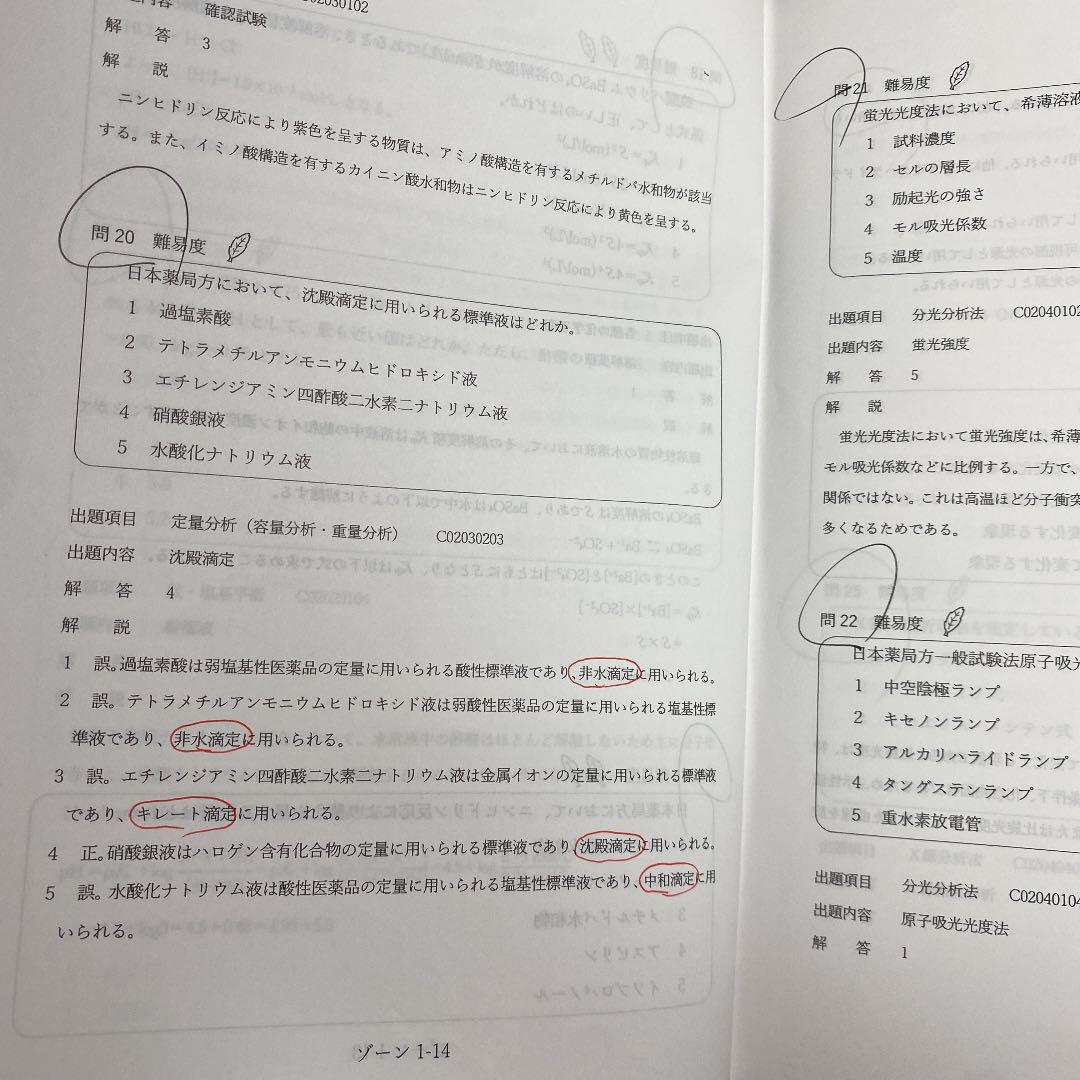 確認試験
解 答 3
解 説
ニンヒドリン反応により紫色を呈する物質は、アミノ酸構造を有するメチルドパ水和物が該当
する。また、イミノ酸構造を有するカイニン酸水和物はニンヒドリン反応により黄色を呈する。
問20 難易度
日本薬局方において、沈殿滴定に用いられる標準液はどれか。
1 過塩素酸
2 テトラメチルアンモニウムヒドロキシド液
3 エチレンジアミン四酢酸二水素二ナトリウム液
4 硝酸銀液
5 水酸化ナトリウム液
出題項目 定量分析（容量分析・重量分析） C02030203
出題内容 沈殿滴定
解 答 4
解 説
1 誤。過塩素酸は弱塩基性医薬品の定量に用いられる酸性標準液であり、非水滴定に用いられる。
2 誤。テトラメチルアンモニウムヒドロキシド液は弱酸性医薬品の定量に用いられる塩基性標
準液であり、非水滴定に用いられる。
3 誤。エチレンジアミン四酢酸二水素二ナトリウム液は金属イオンの定量に用いられる標準液
であり、キレート滴定に用いられる。
4 正。硝酸銀液はハロゲン含有化合物の定量に用いられる標準液であり、沈殿滴定に用いられる。
5 誤。水酸化ナトリウム液は酸性医薬品の定量に用いられる塩基性標準液であり、中和滴定に用
いられる。
ゾーン 1-14
問21 難易度
蛍光光度法において、希薄溶液
1 試料濃度
2 セルの層長
3 励起光の強さ
4 モル吸光係数
5 温度
出題項目 分光分析法 C02040102
出題内容 蛍光強度
解 答 5
解 説
蛍光光度法において蛍光強度は、希薄
モル吸光係数などに比例する。一方で、
関係ではない。これは高温ほど分子衝突
多くなるためである。
問22 難易度
日本薬局方一般試験法原子吸光
1 中空陰極ランプ
2 キセノンランプ
3 アルカリハライドランプ
4 タングステンランプ
5 重水素放電管
出題項目 分光分析法 C02040104
出題内容 原子吸光光度法
解 答 1